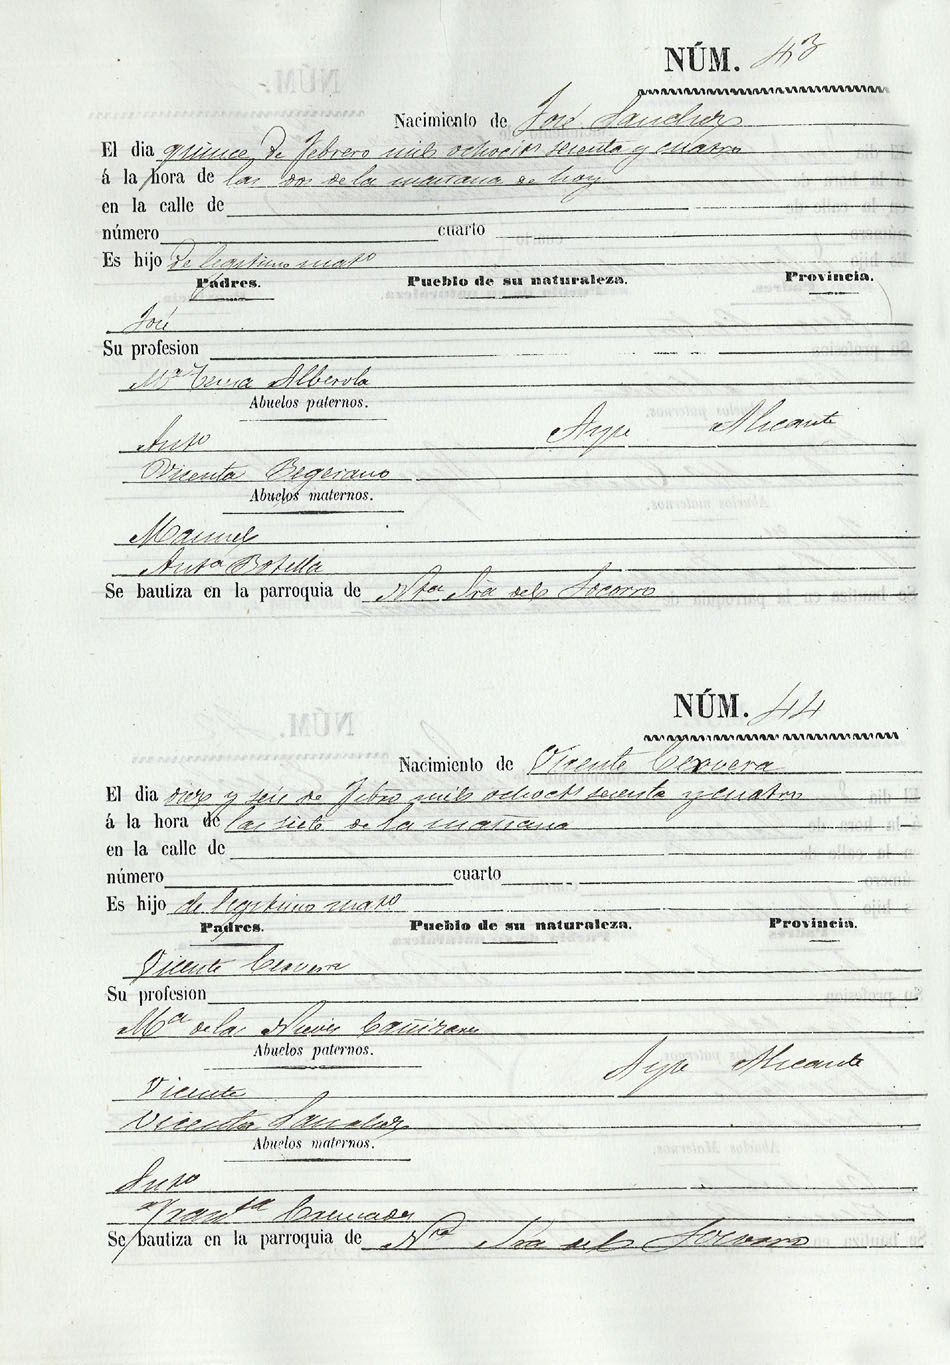 NÚM. 43
Nacimiento de José Sanchez
El dia quince de febrero mil ochocits sesenta y cuatro
á la hora de las dos de la mañana de hoy
en la calle de
número cuarto
Es hijo de legitimo mato
Padres. Pueblo de su naturaleza. Provincia.
José
Su profesion
Mª Teresa Alberola
Abuelos paternos.
Anto Aspe Alicante
Vicenta Begerano
Abuelos maternos.
Manuel
Anta Botella
Se bautiza en la parroquia de Ntra Sra del Socorro
NÚM. 44
Nacimiento de Vicente Cervera
El dia diez y seis de febro mil ochocts sesenta y cuatro
á la hora de las siete de la mañana
en la calle de
número cuarto
Es hijo de legitimo mato
Padres. Pueblo de su naturaleza. Provincia.
Vicente Cervera
Su profesion
Mª de las Nieves Cañizares
Abuelos paternos.
Aspe Alicante
Vicente
Vicenta Sanchez
Abuelos maternos.
Anto
Franca
Se bautiza en la parroquia de Nra Sra del Socorro